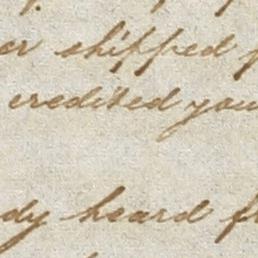 er shipped
credited you
dy heard